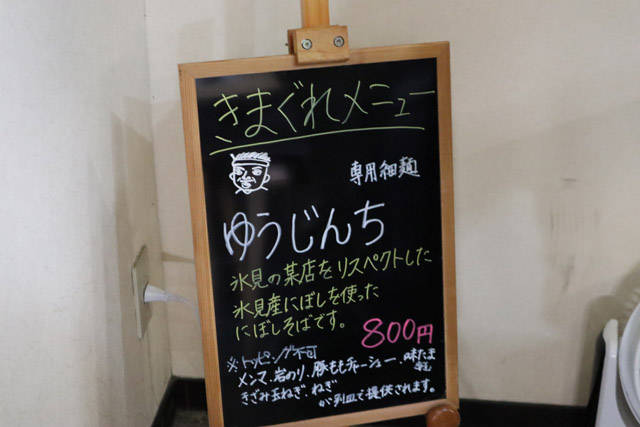 きまぐれメニュー
専用細麺
ゆうじんち
氷見の某店をリスペクトした
氷見産にぼしを使った
にぼしそばです。
800円
※トッピング不可
メンマ、岩のり、豚ももチャーシュー、味たま
きざみ玉ねぎ、ねぎ
が別皿で提供されます。